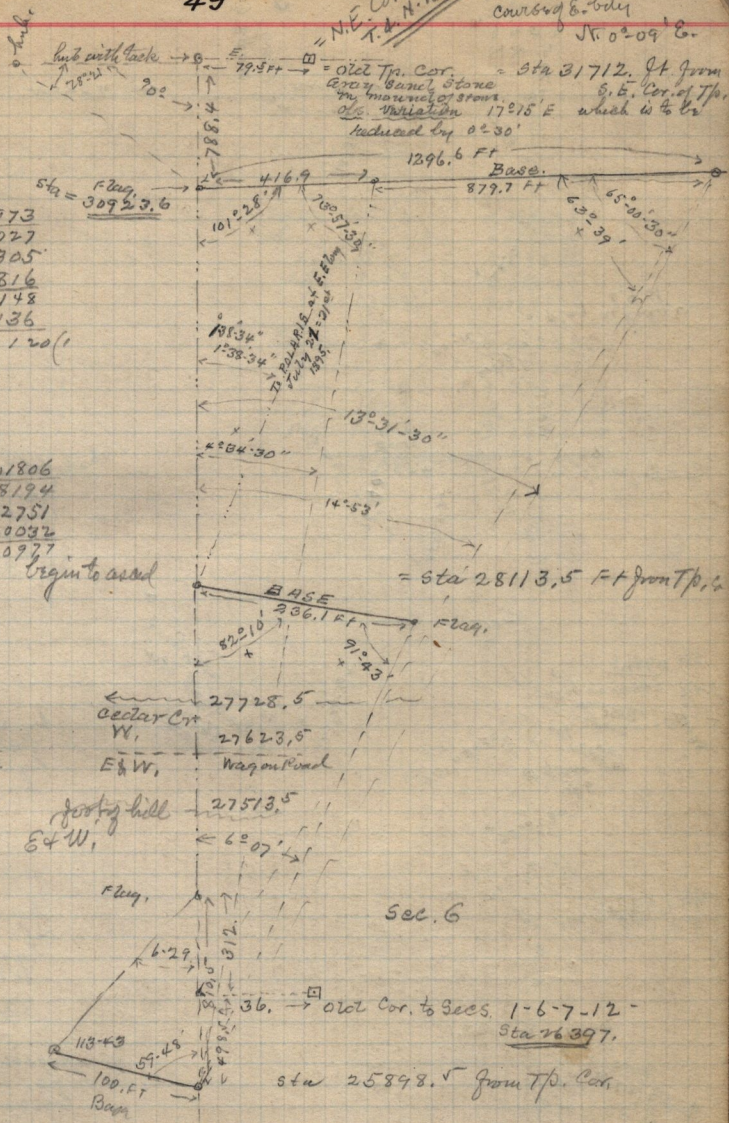 49
"N.E. Cor.
T. & N.
Course of E. bdy
N. 0°-09' E.
hub
hub with tack
28°-21'
90°
E.
79.5 Ft
= old Tp. Cor. = Sta 31712. ft. from
Gray Sand Stone S.E. Cor. of Tp.
in mound of stone.
obs. variation 17°15' E which is to be
reduced by 0°-30'
788.4
1296.6 Ft
Base.
416.9
879.7 Ft
Flag.
Sta = 30923.6
101°-28'
73°-57'-30"
65°-00'-30"
63°-39'
973
027
305
816
148
136
120(1
To POLARIS at E. Elong
July 21st
1895.
1°38'-34"
1°-38'-34"
13°-31'-30"
4°-34'-30"
14°-53'
1806
8194
2751
0032
0977
begin to ascd
= Sta 28113.5 Ft from Tp. Co
BASE
236.1 Ft
Flag.
82°-10'
91°-43'
27728.5
Cedar Cr.
W.
27623.5
E&W. Wagon Road
foot of hill 27513.5
E & W.
6°-07'
Flag.
Sec. 6
312.
6-29
810.5
498.5
36. → old Cor. to Secs. 1-6-7-12-
Sta 26397.
113-43
59-48'
100. FT
Base
sta 25898.5 from Tp. Cor.